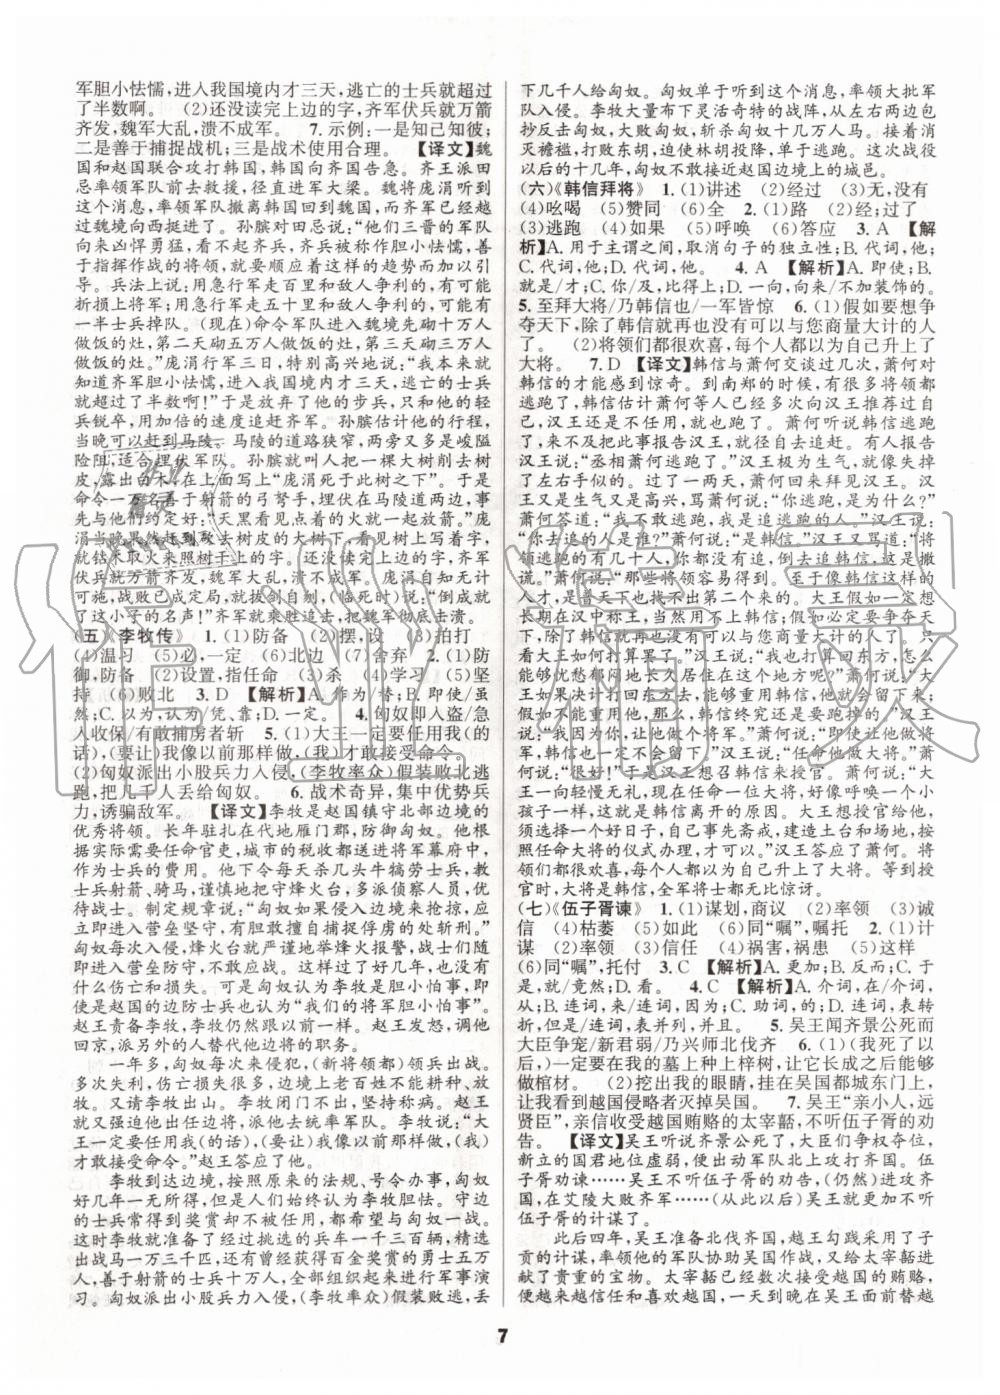 军胆小怯懦,进入我国境内才三天,逃亡的士兵就超过
了半数啊。 (2)还没读完上边的字,齐军伏兵就万箭
齐发,魏军大乱,溃不成军。 7. 示例:一是知己知彼;
二是善于捕捉战机;三是战术使用合理。 【译文】魏
国和赵国联合攻打韩国,韩国向齐国告急。齐王派田
忌率领军队前去救援,径直进军大梁。魏将庞涓听到
这个消息,率领军队撤离韩国回到魏国,而齐军已经越
过魏境向西挺进了。孙膑对田忌说:“他们三晋的军队
向来凶悍勇猛,看不起齐兵,齐兵被称作胆小怯懦,善
于指挥作战的将领,就要顺应着这样的趋势而加以引
导。兵法上说:用急行军走百里和敌人争利的,有可能
折损上将军;用急行军走五十里和敌人争利的,可能有
一半士兵掉队。(现在)命令军队进入魏境先砌十万人
做饭的灶,第二天砌五万人做饭的灶,第三天砌三万人
做饭的灶。”庞涓行军三日,特别高兴地说:“我本来就
知道齐军胆小怯懦,进入我国境内才三天,逃亡的士兵
就超过了半数啊!”于是放弃了他的步兵,只和他的轻
兵锐卒,用加倍的速度追赶齐军。孙膑估计他的行程,
当晚可以赶到马陵。马陵的道路狭窄,两旁又多是峻隘
险阻,适合埋伏军队。孙膑叫人把一棵大树削去树
皮,露出白木,在上面写道:“庞涓死于此树之下”。于是
命令一万名善于射箭的弓弩手,埋伏在马陵道两边,事
先与他们约定好:“天黑看见点着的火就一起放箭。”庞
涓当晚果然来到被削去皮的大树下,看见上面写着字,
就钻木取火来照树干上的字。还没读完上边的字,齐军
伏兵就万箭齐发,魏军大乱,溃不成军。庞涓自知无计
可施,大败已成定局,就拔剑自刎,(临死时)说:“倒成就
了这小子的名声!”齐军就乘胜追击,把魏军彻底击溃。
(五)《李牧传》 1. (1)防备 (2)摆,设 (3)拍打
(4)温习 (5)必,一定 (6)北边 (7)舍弃 2. (1)防
御,防备 (2)设置,指任命 (3)杀 (4)学习 (5)坚
持 (6)败北 3. D 【解析】A. 作为/替;B. 即使/虽
然;C. 以为,认为/凭,靠;D. 一定。 4. 匈奴即入盗/急
入收保/有敢捕虏者斩 5. (1)大王一定要任用我(的
话),(要让)我像以前那样做,(我)才敢接受命令。
(2)匈奴派出小股兵力入侵,(李牧率众)假装败北逃
跑,把几千人丢给匈奴。 6. 战术奇异,集中优势兵
力,诱骗敌军。 【译文】李牧是赵国镇守北部边境的
优秀将领。长年驻扎在代地雁门郡,防御匈奴。他根
据实际需要任命官吏,城市的税收都送进将军幕府中,
作为士兵的费用。他下令每天杀几头牛犒劳士兵,教
士兵射箭、骑马,谨慎地把守烽火台,多派侦察人员,优
待战士。制定规章说:“匈奴如果侵入边境来抢掠,应
立即进入营垒坚守,有胆敢捕捉俘虏的处斩刑。”每次
匈奴每次入侵,烽火台就严谨地举烽火报警,战士们随即
进入营垒防守,不敢应战。这样过了好几年,也没有
什么伤亡和损失。可是匈奴认为李牧是胆小怕事,即
使是赵国的边防士兵也认为“我们的将军胆小怕事”。
赵王责备李牧,李牧仍然跟以前一样。赵王发怒,调他
回京,派另外的人替代他边将的职务。
一年多,匈奴每次来侵犯,(新将领都)领兵出战。
多次失利,伤亡损失很多,边境上老百姓不能耕种、放
牧。又请李牧出山。李牧闭门不出,坚持称病。赵王
就又强迫他出任边将,派他去统率军队。李牧说:“大
王一定要任用我(的话),(要让)我像以前那样做,(我)
才敢接受命令。”赵王答应了他。
李牧到达边境,按照原来的法规、号令办事,匈奴
好几年一无所得,但是人们始终认为李牧胆怯。守边
的士兵常得到奖赏却不被任用,都希望与匈奴一战。
这时李牧就准备了经过挑选的兵车一千三百辆,精选
出战马一万三千匹,还有曾经获得百金奖赏的勇士五万
人,善于射箭的士兵十万人,全部组织起来进行军事演
习。匈奴派出小股兵力入侵,(李牧率众)假装败逃,丢
下几千人给匈奴。匈奴单于听到这个消息,率领大批军
队入侵。李牧大量布下灵活奇特的战阵,从左右两边包
抄反击匈奴,大败匈奴,斩杀匈奴十几万人马。接着消
灭襜褴,打败东胡,迫使林胡投降,单于逃跑。这次战役
以后的十几年,匈奴都不敢接近赵国边境上的城邑。
(六)《韩信拜将》 1. (1)讲述 (2)经过 (3)无,没有
(4)吆喝 (5)赞同 (6)全 2. (1)路 (2)经;过了
(3)逃跑 (4)如果 (5)呼唤 (6)答应 3. A 【解
析】A. 用于主谓之间,取消句子的独立性;B. 代词,他;
C. 代词,他;D. 代词,他。 4. A 【解析】A. 即使;B.
就是/才;C. 你/及,比得上;D. 一向,向来/不加装饰的。
5. 至拜大将/乃韩信也/一军皆惊 6. (1)假如要想争
夺天下,除了韩信就再也没有可以与您商量大计的人
了。 (2)将领们都很欢喜,每个人都以为自己升上了
大将。 7. D 【译文】韩信与萧何交谈过几次,萧何对
韩信的才能感到惊奇。到南郑的时候,有很多将领都
逃跑了,韩信估计萧何等人已经多次向汉王推荐过自
己,汉王还是不任用,就也逃跑了。萧何听说韩信逃跑
了,来不及把此事报告汉王,就径自去追赶。有人报告
汉王说:“丞相萧何逃跑了。”汉王极为生气,就像失掉
了左右手似的。过了一两天,萧何来拜见汉王。汉
王又是生气又是高兴,骂萧何说:“你逃跑,是为什么?”
萧何答道:“我不敢逃跑,我是追逃跑的人。”汉王说:
“你去追的是谁?”萧何说:“是韩信。”汉王又骂道:“将
领逃跑的有几十人,你都没有追,倒去追韩信,这是撒
谎。”萧何说:“那些将领容易得到。至于像韩信这样的
人才,是普天下也找不出第二个来的。大王假如只想
长期在汉中称王,当然用不上韩信;假如必定要争夺天
下,除了韩信就再也没有可以商量大计的人。只看
看大王如何打算罢了。”汉王说:“我也打算回东方去
呀,怎么能够忧郁苦闷地长久居住在这个地方呢?”萧何
说:“如果能够重用韩信,他就会留下来;
假如不能重用他,那么,韩信终究还是要跑掉的。”汉
王说:“我为了你,让他做个将军。”萧何说:“即使让他做将
军,韩信一定不会留下来的。”汉王说:“任命他做大将军。”萧
何说:“很好!”于是汉王就想召见韩信来任命他。
萧何说:“大王一向傲慢无礼,现在任命一位大将,像是呼唤一个小
孩子一样,这就是韩信离开的原因。大王想授官给他,
须选择一个好日子,自己事先斋戒,建造土台和场地,按
照任命大将的仪式办理,才可以。”汉王答应了萧何。将
领们都很欢喜,每个人都以为自己升上了大将。等到授
官时,大将是韩信,全军将士都无比惊讶。
(七)《伍子胥谏》 1. (1)谋划,商议 (2)率领 (3)诚
信 (4)枯萎 (5)如此 (6)同“嘱”,嘱托 2. (1)计
谋 (2)率领 (3)信任 (4)祸害,祸患 (5)这样
(6)同“嘱”,托付 3. C 【解析】A. 更加;B. 反而;C. 于
是,就/竟然;D. 看。 4. C 【解析】A. 介词,在/介词,
从;B. 连词,来/连词,因为;C. 助词,的;D. 连词,表转
折,但是/连词,表并列,并且。 5. 吴王闻齐景公死而
大臣争宠/新君弱/乃兴师北伐齐 6. (1)(我死了以
后,)一定要在我的墓上种上梓树,让它长成之后能够
做棺材。 (2)挖出我的眼睛,挂在吴国都城东门上,
让我看到越国侵略者灭掉吴国。 7. 吴王“亲小人,远
贤臣”,亲信收受越国贿赂的太宰嚭,不听伍子胥的劝
谏。 【译文】吴王听说齐景公死了,大臣们争权夺位,
新立的国君地位虚弱,便出动军队北上攻打齐国。伍
子胥劝谏……吴王不听伍子胥的劝告,(仍然)进攻齐
国,在艾陵大败齐军……(从此以后)吴王就更加不听
伍子胥的计谋了。
此后四年,吴王准备北伐齐国,越王勾践采用了子
贡的计谋,率领他的军队协助吴国作战,又给太宰嚭进
献了贵重的宝物。太宰嚭已经数次接受越国的贿赂,
便越来越信任和喜欢越国,一天到晚在吴王面前替越
7